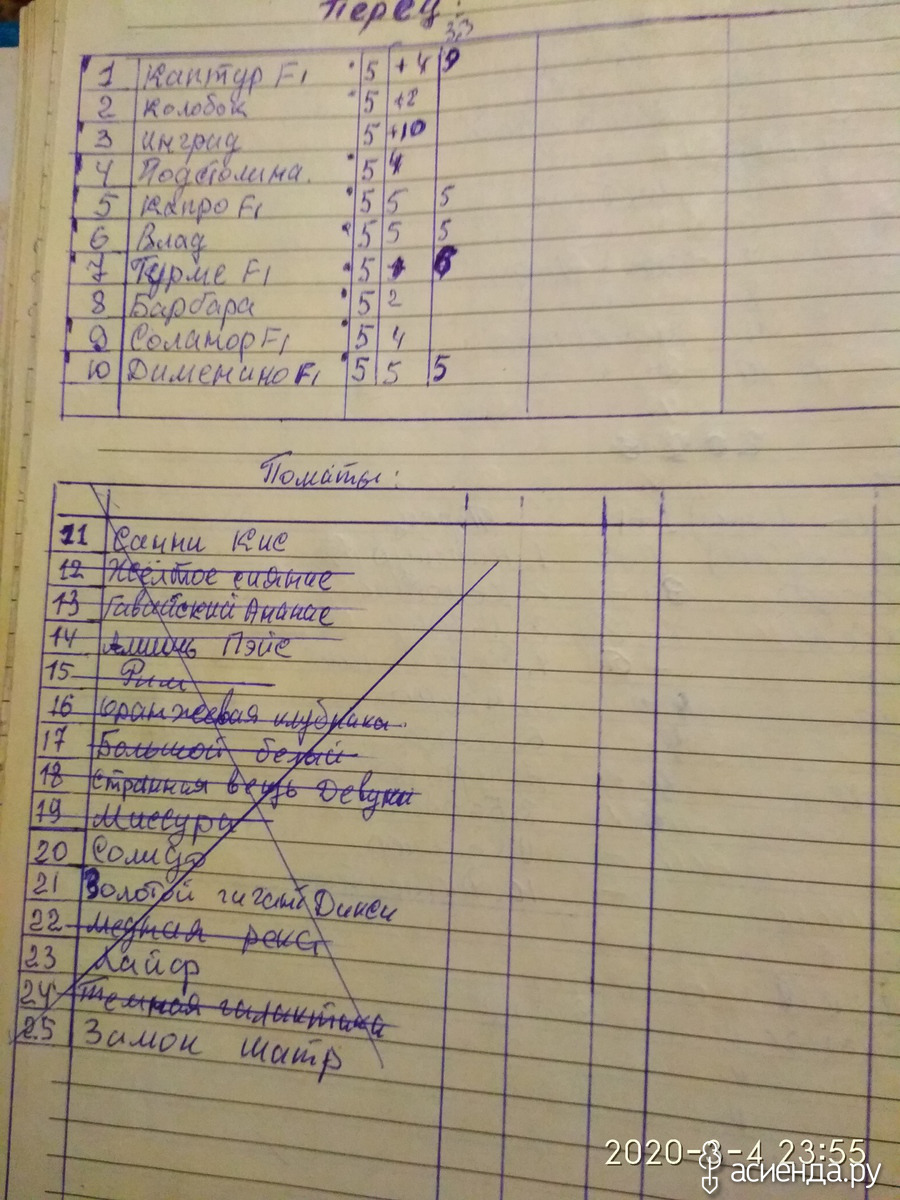 Перец:
33
1 Кантур F1 5 +4 9
2 Колобок 5 +2
3 Ингрид 5 +10
4 Подстолина. 5 4
5 Капро F1 5 5 5
6 Влад 5 5 5
7 Гурме F1 5 6
8 Барбара 5 2
9 Соланор F1 5 4
10 Дименино F1 5 5 5
Томаты:
11 Санни Кис
12 Жёлтое сияние
13 Гавайский Ананас
14 Амишь Пэйс
15 Рим
16 Оранжевая клубника.
17 Большой белый
18 Странная вещь Девуки
19 Миссура
20 Солидо
21 Золотой гигант Дикси
22 Медная река
23 Лайф
24 Темная галактика
25 Замок шатр
2020-3-4 23:55
асиенда.ру